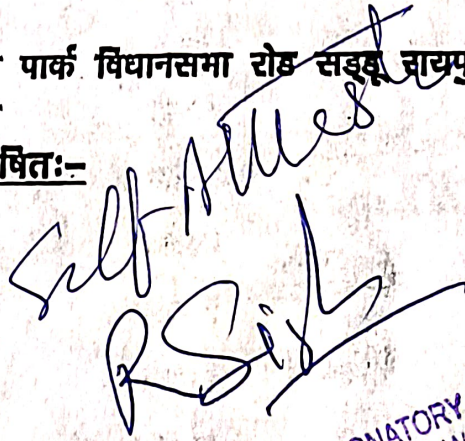 पार्क विधानसभा रोड सड्डू रायपु
षितः–
Self Attested
R Singh
NATORY